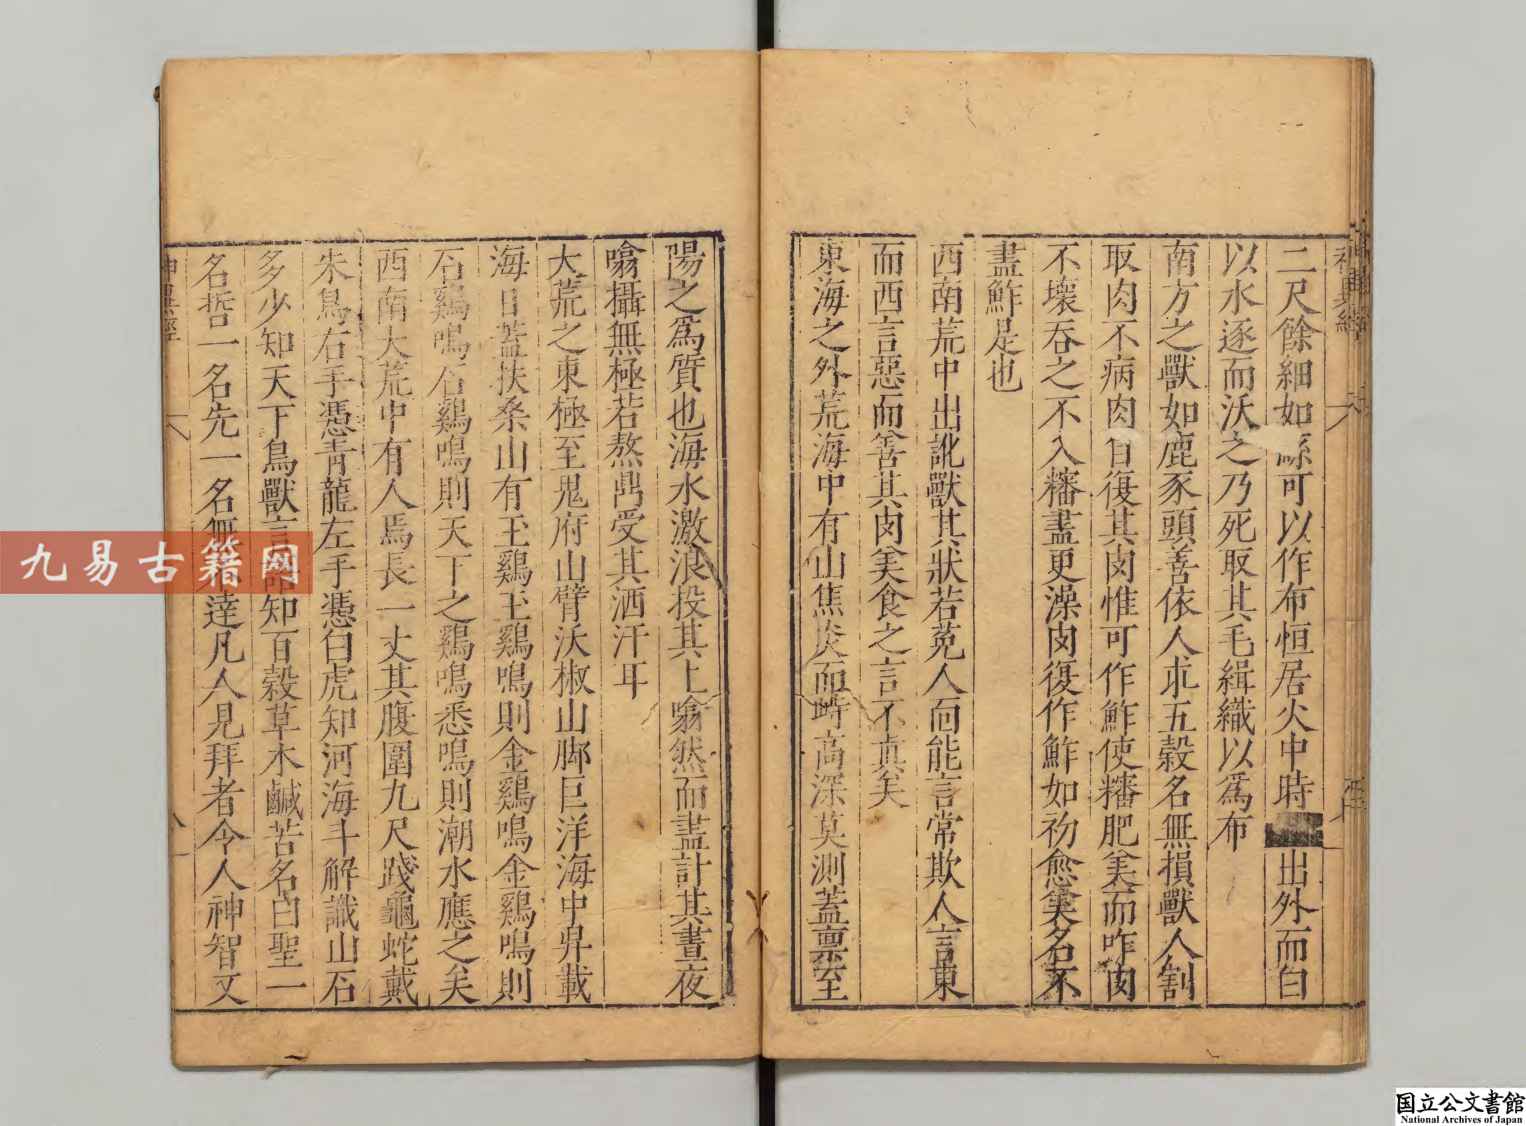 二尺餘細如絲可以作布恒居火中時出外而白
以水逐而沃之乃死取其毛緝織以爲布
南方之獸如鹿豕頭善依人求五穀名無損獸人割
取肉不病肉自復其肉惟可作鮓使糝肥美而咋肉
不壞吞之不入糝盡更澡肉復作鮓如初愈美名不
盡鮓是也
西南荒中出訛獸其狀若菟人面能言常欺人言東
而西言惡而善其肉美食之言不真矣
東海之外荒海中有山焦炎而峙高深莫測蓋禀至
陽之爲質也海水激浪投其上噏然而盡計其晝夜
噏攝無極若熬鼎受其洒汗耳
大荒之東極至鬼府山臂沃椒山脚巨洋海中昇載
海日蓋扶桑山有玉鷄玉鷄鳴則金鷄鳴金鷄鳴則
石鷄鳴石鷄鳴則天下之鷄鳴悉鳴則潮水應之矣
西南大荒中有人焉長一丈其腹圍九尺踐龜蛇戴
朱鳥右手憑青龍左手憑白虎知河海斗解識山石
多少知天下鳥獸言知百穀草木鹹苦名曰聖一
名哲一名先一名無達凡人見拜者令人神智又
神異經
九易古籍网
国立公文書館
National Archives of Japan